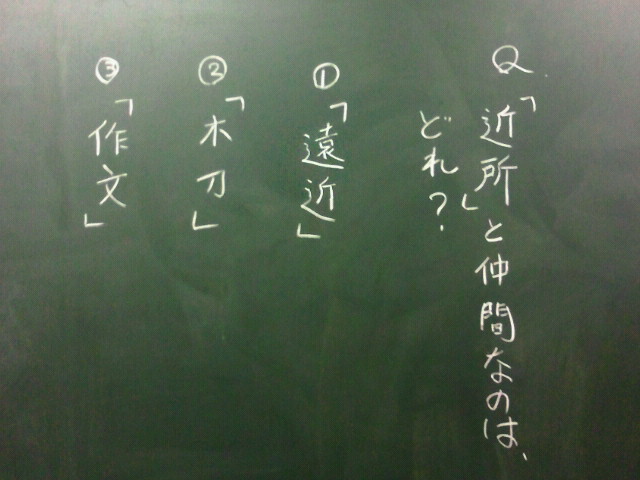 Q.「近所」と仲間なのは、
どれ？
①「遠近」
②「木刀」
③「作文」